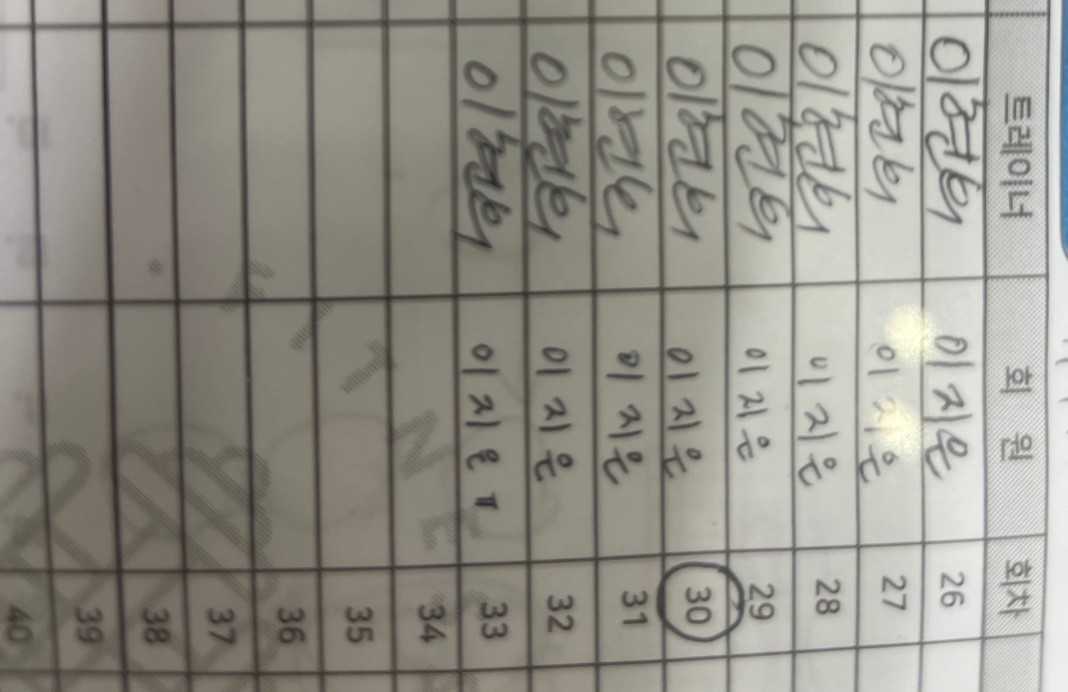 트레이너 회 원 회차
이현혁 이지은 26
이현혁 이지은 27
이현혁 이지은 28
이현혁 이지은 29
이현혁 이지은 30
이현혁 이지은 31
이현혁 이지은 32
이현혁 이지은 ㅠ 33
34
35
36
37
38
39
40